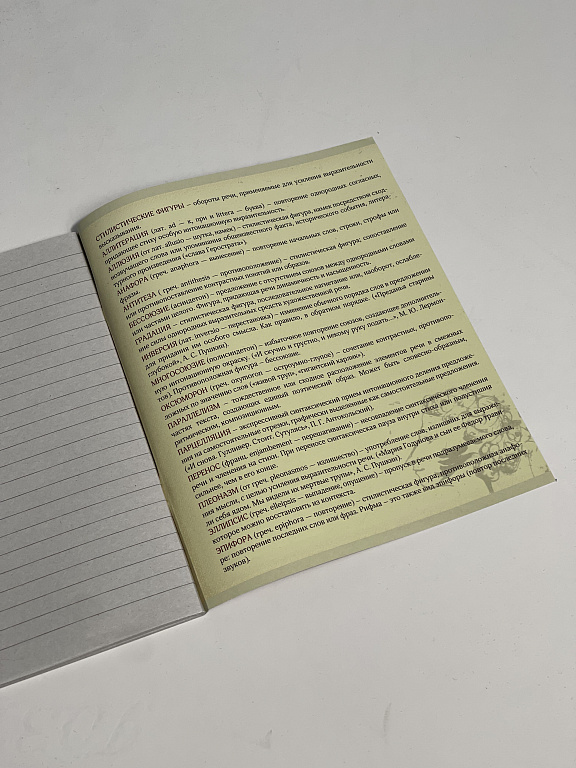 СТИЛИСТИЧЕСКИЕ ФИГУРЫ – обороты речи, применяемые для усиления выразительности
высказывания.
АЛЛИТЕРАЦИЯ (лат. ad – к, при и littera – буква) – повторение однородных согласных,
придающее стиху особую интонационную выразительность.
АЛЛЮЗИЯ (от лат. allusio – шутка, намек) – стилистическая фигура, намек посредством сход-
нозвучащего слова или упоминания общеизвестного факта, исторического события, литера-
турного произведения («слава Герострата»).
АНАФОРА (греч. anaphora – вынесение) – повторение начальных слов, строки, строфы или
фразы.
АНТИТЕЗА ( греч. antithesis – противоположение) – стилистическая фигура; сопоставление
или противопоставление контрастных понятий или образов.
БЕССОЮЗИЕ (асиндетон) – предложение с отсутствием союзов между однородными словами
или частями целого, фигура, придающая речи динамичность и насыщенность.
ГРАДАЦИЯ – стилистическая фигура, последовательное нагнетание или, наоборот, ослабле-
ние силы однородных выразительных средств художественной речи.
ИНВЕРСИЯ (лат. inversio – перестановка) – изменение обычного порядка слов в предложении
для придания им особого смысла. Как правило, в обратном порядке. («Преданья старины
глубокой», А. С. Пушкин)
МНОГОСОЮЗИЕ (полисиндетон) – избыточное повторение союзов, создающее дополнитель-
ную интонационную окраску. («И скучно и грустно, и некому руку подать...», М. Ю. Лермон-
тов). Противоположная фигура – бессоюзие.
ОКСЮМОРОН (греч. oxymoron – остроумно-глупое) – сочетание контрастных, противопо-
ложных по значению слов («живой труп», «гигантский карлик»).
ПАРАЛЛЕЛИЗМ – тождественное или сходное расположение элементов речи в смежных
частях текста, создающих единый поэтический образ. Может быть словесно-образным,
ритмическим, композиционным.
ПАРЦЕЛЛЯЦИЯ – экспрессивный синтаксический прием интонационного деления предложе-
ния на самостоятельные отрезки, графически выделенные как самостоятельные предложения.
(«И снова. Гулливер. Стоит. Сутулясь», П. Г. Антокольский).
ПЕРЕНОС (франц. enjambement – перешагивание) – несовпадение синтаксического членения
речи и членения на стихи. При переносе синтаксическая пауза внутри стиха или полустишия
сильнее, чем в его конце.
ПЛЕОНАЗМ (от греч. pleonasmos – излишество) – употребление слов, излишних для выраже-
ния мысли, с целью усиления выразительности речи. («Мария Годунова и сын ее Федор отрави-
ли себя ядом. Мы видели их мертвые трупы», А. С. Пушкин).
ЭЛЛИПСИС (греч. elleipsis – выпадение, опущение) – пропуск в речи подразумеваемого слова,
которое можно восстановить из контекста.
ЭПИФОРА (греч. epiphora – повторение) – стилистическая фигура, противоположная анафо-
ре: повторение последних слов или фраз. Рифма – это также вид эпифоры (повтор последних
звуков).